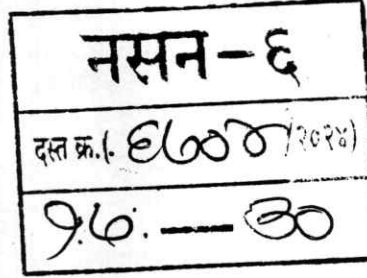 नसन-६
दस्त क्र.।. ६७०४/२०२४)
१७. — ३०